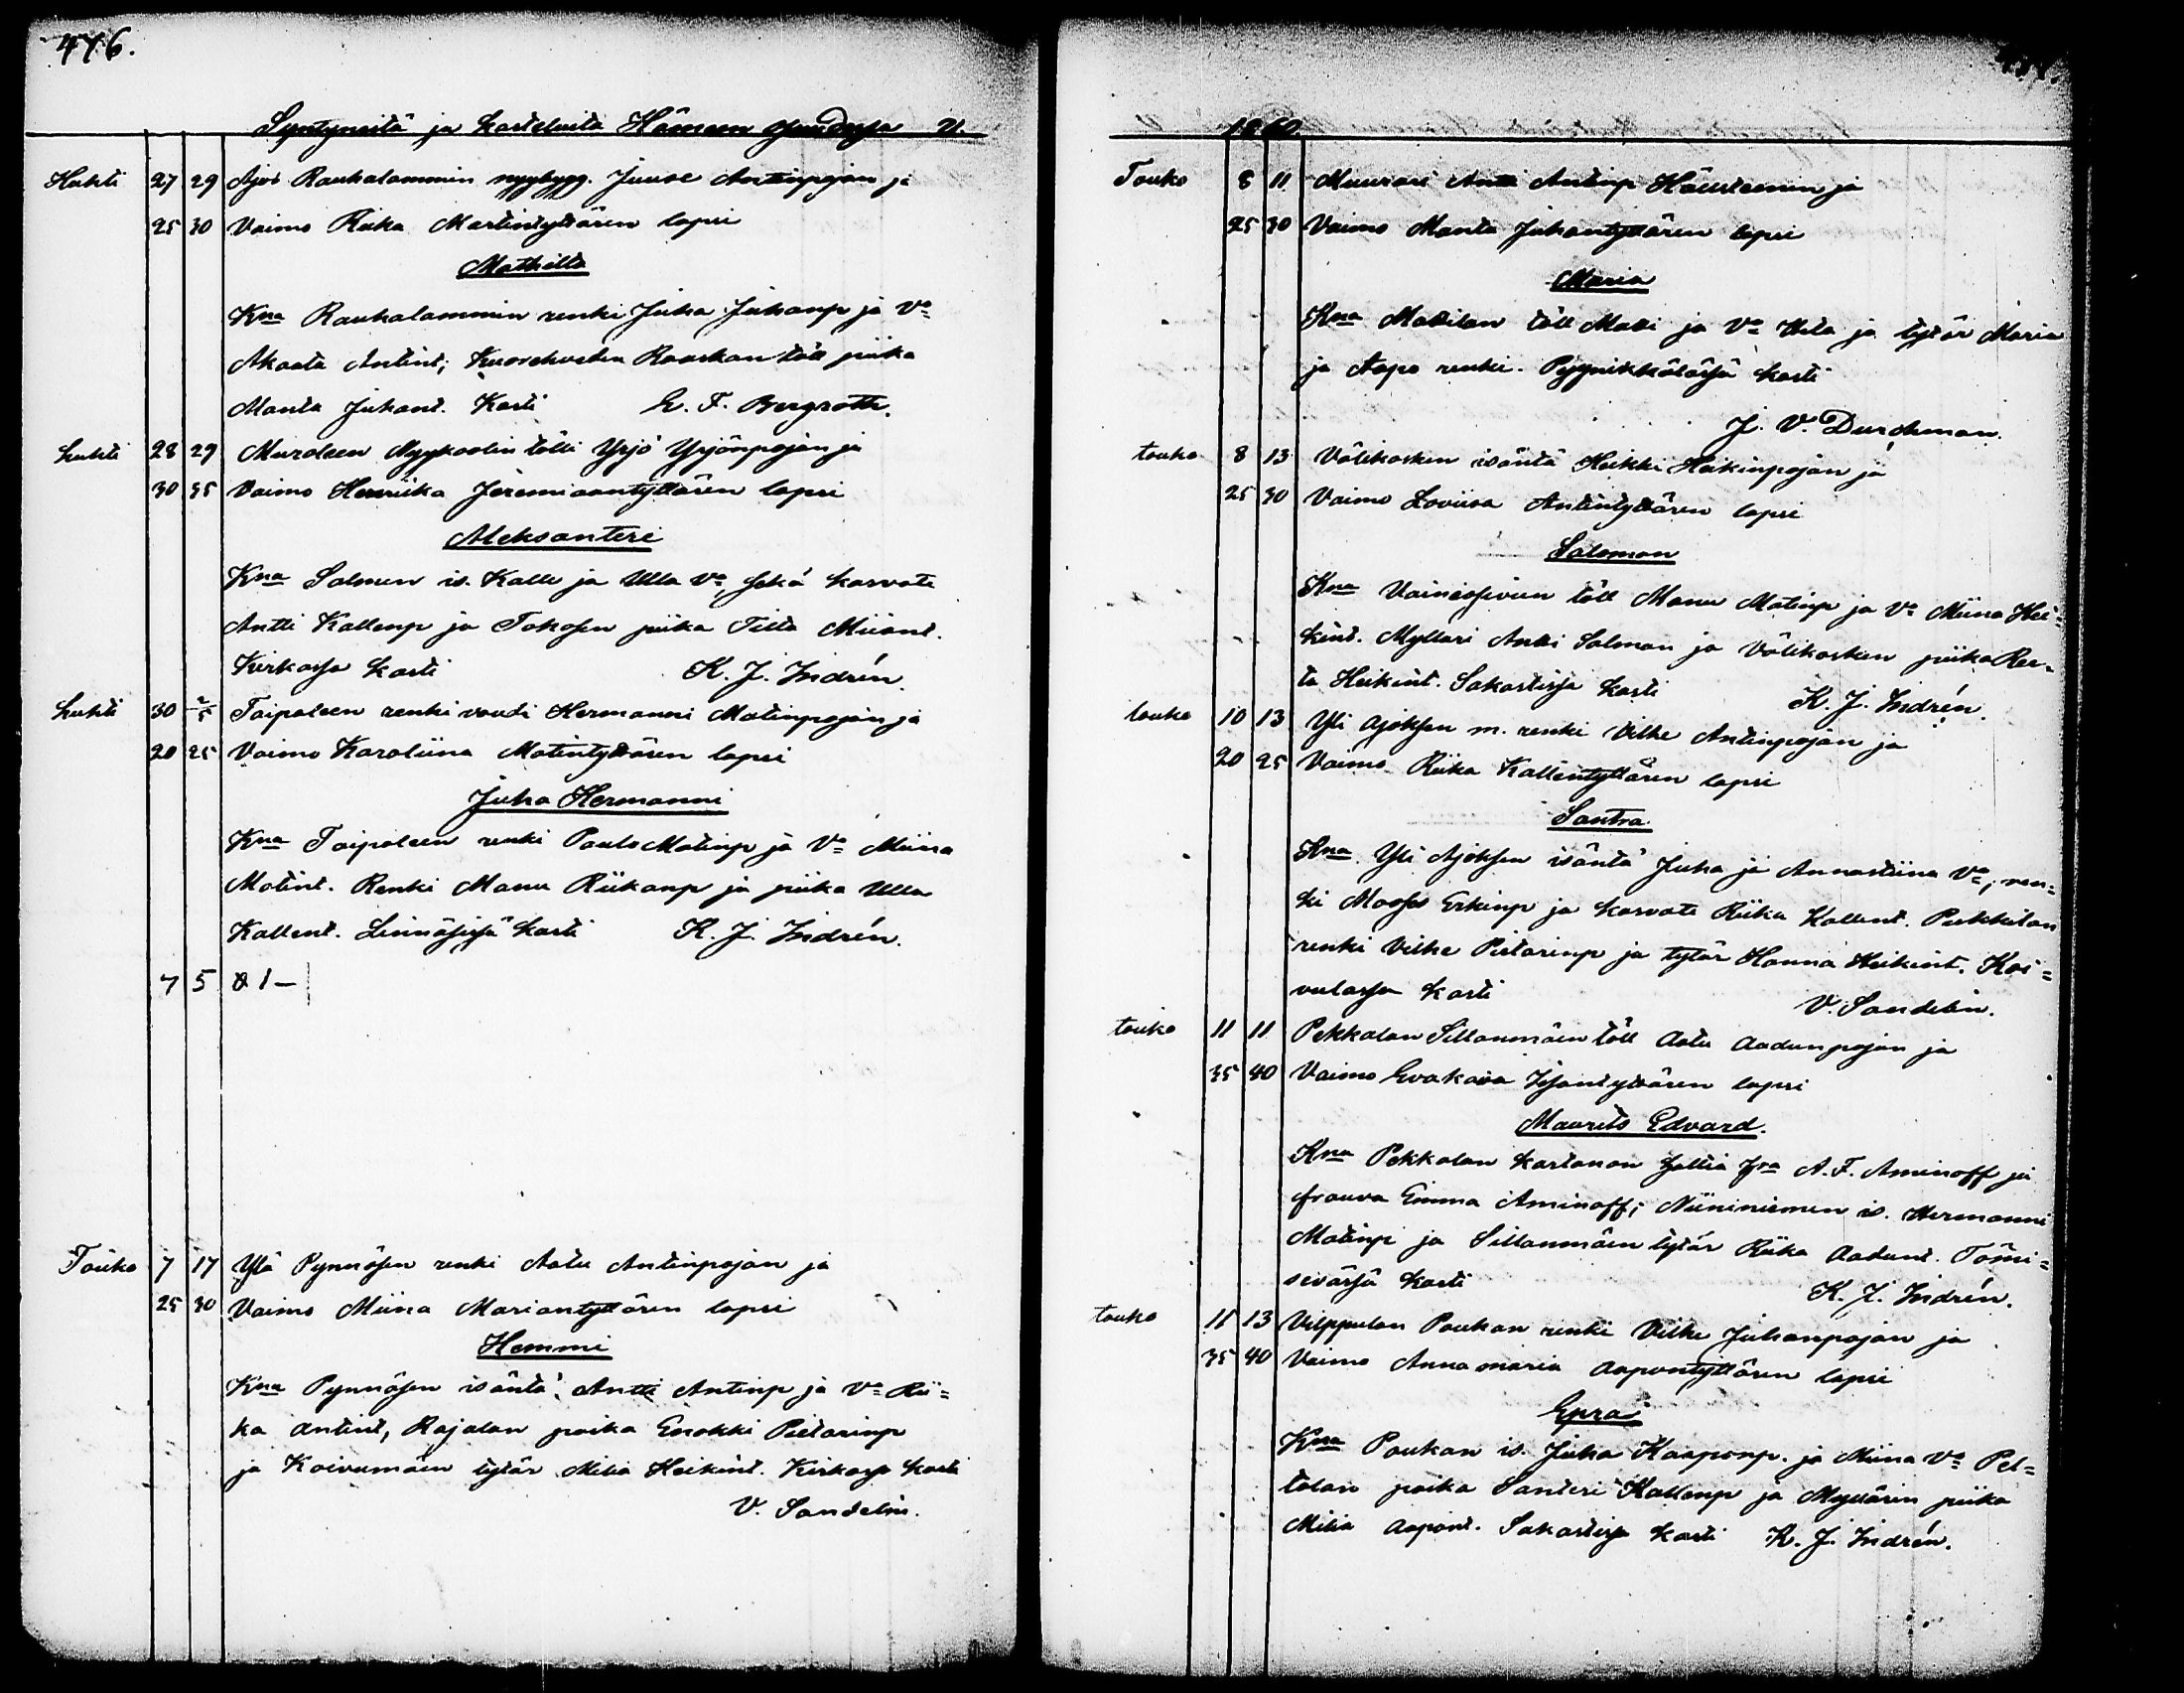 476.
Syntyneitä ja kasteluita Hämeen V.
Huhti 27 29 Ajos Rauhalammin nyybygg. Juuse Antinpojan ja
25 30 Vaimo Riika Martintyttären lapsi
Mathilta
Kna Rauhalammin renki Juha Juhanp ja Va
Akaata Antint; Kuorehveden Raaskan töll piika
Manta Juhant. Kasti E. F. Bergroth.
huhti 28 29 Muroleen Myykoolin tölli Yrjö Yrjönpojan ja
30 35 Vaimo Henriika Jeremiaantyttären lapsi
Aleksanteri
Kna Salmen is. Kalle ja Ulla va, sekä kasvate
Antti Kallenp ja Tokosen piika Tilta Miiant.
Kirkossa kasti K. J. Indrén.
huhti 30 2/5 Taipaleen renki voudi Hermanni Matinpojan ja
20 25 Vaimo Karoliina Matintyttären lapsi
Juha Hermanni
Kna Taipaleen renki Paulo Matinp ja Va Miina
Matint. Renki Manu Riikanp ja piika Ulla
Kallent. Linnäsissä kasti K. J. Indrén.
7 5 & 1 —
Touko 7 17 Ylä Pynnösen renki Aatu Antinpojan ja
25 30 Vaimo Miina Mariantyttären lapsi
Hemmi
Kna Pynnösen isäntä Antti Antinp ja Va Rii=
ka Antint, Rajalan poika Enokki Pietarinp
ja Koivumäen tytär Milia Heikint. Kirkossa kasti
V. Sandelin.
1860
Touko 8 11 Muurari Antti Antinp Hällsteenin ja
25 30 Vaimo Manta Juhantyttären lapsi
Maria
Kna Mattilan töll Matti ja Va Heta ja tytär Maria
ja Aapo renki. Pyynikkälässä kasti
J. V. Durchman.
touko 8 13 Välikosken isäntä Heikki Heikinpojan ja
25 30 Vaimo Loviisa Antintyttären lapsi
Salomon
Kna töll Manu Matinp ja Va Miina Hei=
kint. Myllari Antti Salman ja Välikosken piika Ree=
ta Heikint. Sakastissa kasti K. J. Indrén.
touko 10 13 Yli Ajoksen m. renki Vilke Antinpojan ja
20 25 Vaimo Riika Kallentyttären lapsi
Santra
Kna Yli Ajoksen isäntä Juha ja Annastiina Va, ren=
ki Mooses Erkinp ja kasvate Riika Kallent. Pirkkilan
renki Vilke Pietarinp ja tytär Hanna Heikint. Koi=
vulassa kasti V. Sandelin.
touko 11 11 Pekkalan Sillanmäen töll Aatu Aadunpojan ja
35 40 Vaimo Evakaisa Tyttären lapsi
Maurits Edvard.
Kna Pekkalan kartanon hra A. F. Aminoff ja
frouva Emma Aminoff; Niininiemen is. Hermanni
Matinp ja Sillanmäen tytär Riika Aadunt. Tömi=
sevässä kasti K. J. Indrén.
touko 11 13 Vilppulan Paukan renki Vilke Juhanpojan ja
35 40 Vaimo Anna maria Aapontyttären lapsi
Epra
Kna Paukan is. Juha Kaaponp. ja Miina Va Pel=
tolan poika Santeri Kallenp ja Myllärin piika
Milia Aapont. Sakastissa kasti K. J. Indrén.